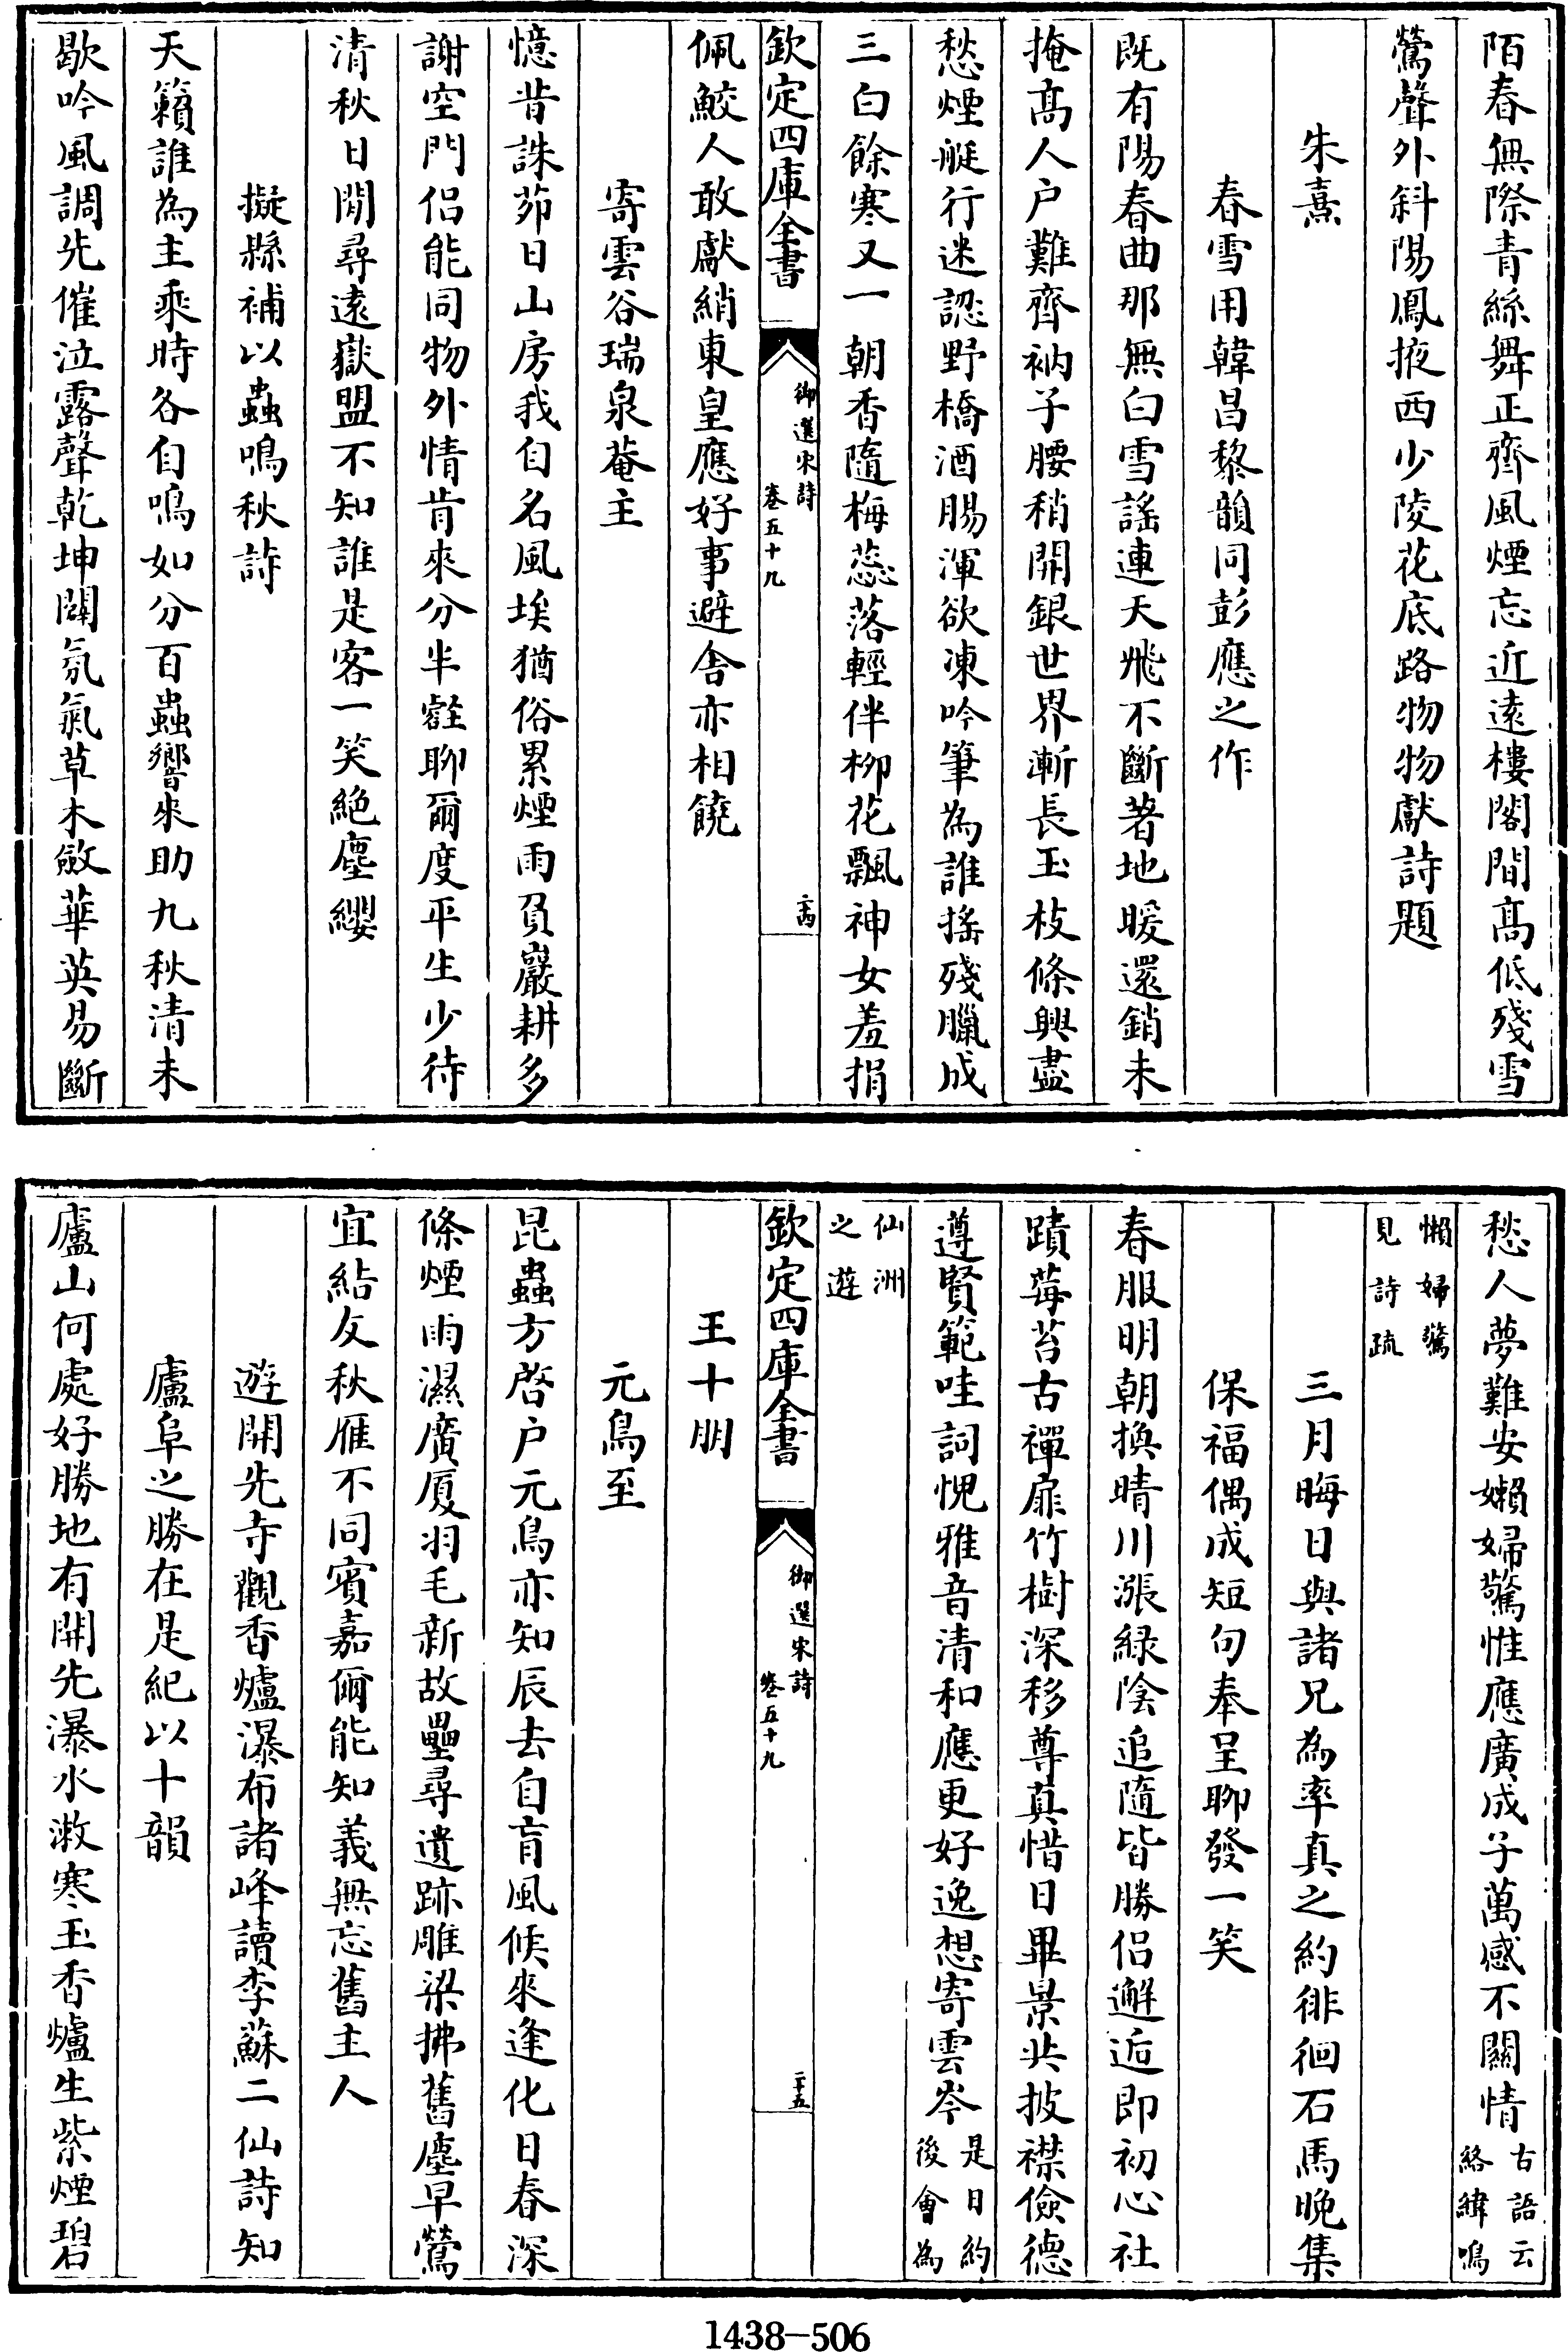 陌春無際青絲舞正齊風煙忘近遠樓閣間髙低殘雪
鶯聲外斜陽鳳掖西少陵花底路物物獻詩題
朱熹
春雪用韓昌黎韻同彭應之作
既有陽春曲那無白雪謠連天飛不斷著地暖還銷未
掩髙人户難齊衲子腰稍開銀世界漸長玉枝條興盡
愁煙艇行迷認野橋酒腸渾欲凍吟筆為誰搖殘臘成
三白餘寒又一朝香隨梅蕊落輕伴柳花飄神女羞捐
欽定四庫全書
御選宋詩
卷五十九
二十四
佩鮫人敢獻綃東皇應好事避舍亦相饒
寄雲谷瑞泉菴主
憶昔誅茆日山房我自名風埃猶俗累煙雨負巖耕多
謝空門侣能同物外情肯來分半壑聊爾度平生少待
清秋日閒尋遠嶽盟不知誰是客一笑絶塵纓
擬縣補以蟲鳴秋詩
天籟誰為主乘時各自鳴如分百蟲響來助九秋清未
歇吟風調先催泣露聲乾坤闢氛氣草木斂華英易斷
愁人夢難安嬾婦驚惟應廣成子萬感不關情古語云絡緯鳴
懶婦驚見詩疏
三月晦日與諸兄為率真之約徘徊石馬晚集
保福偶成短句奉呈聊發一笑
春服明朝換晴川漲緑陰追隨皆勝侣邂逅即初心社
蹟莓苔古禪扉竹樹深移尊真惜日畢景共披襟儉德
遵賢範哇詞愧雅音清和應更好逸想寄雲岑是日約後會為
仙洲之遊
欽定四庫全書
御選宋詩
卷五十九
二十五
王十朋
元鳥至
昆蟲方啓户元鳥亦知辰去自肓風候來逢化日春深
條煙雨濕廣厦羽毛新故壘尋遺跡雕梁拂舊塵早鶯
宜結友秋雁不同賓嘉爾能知義無忘舊主人
遊開先寺觀香爐瀑布諸峰讀李蘇二仙詩知
廬阜之勝在是紀以十韻
廬山何處好勝地有開先瀑水漱寒玉香爐生紫煙碧
1438-506